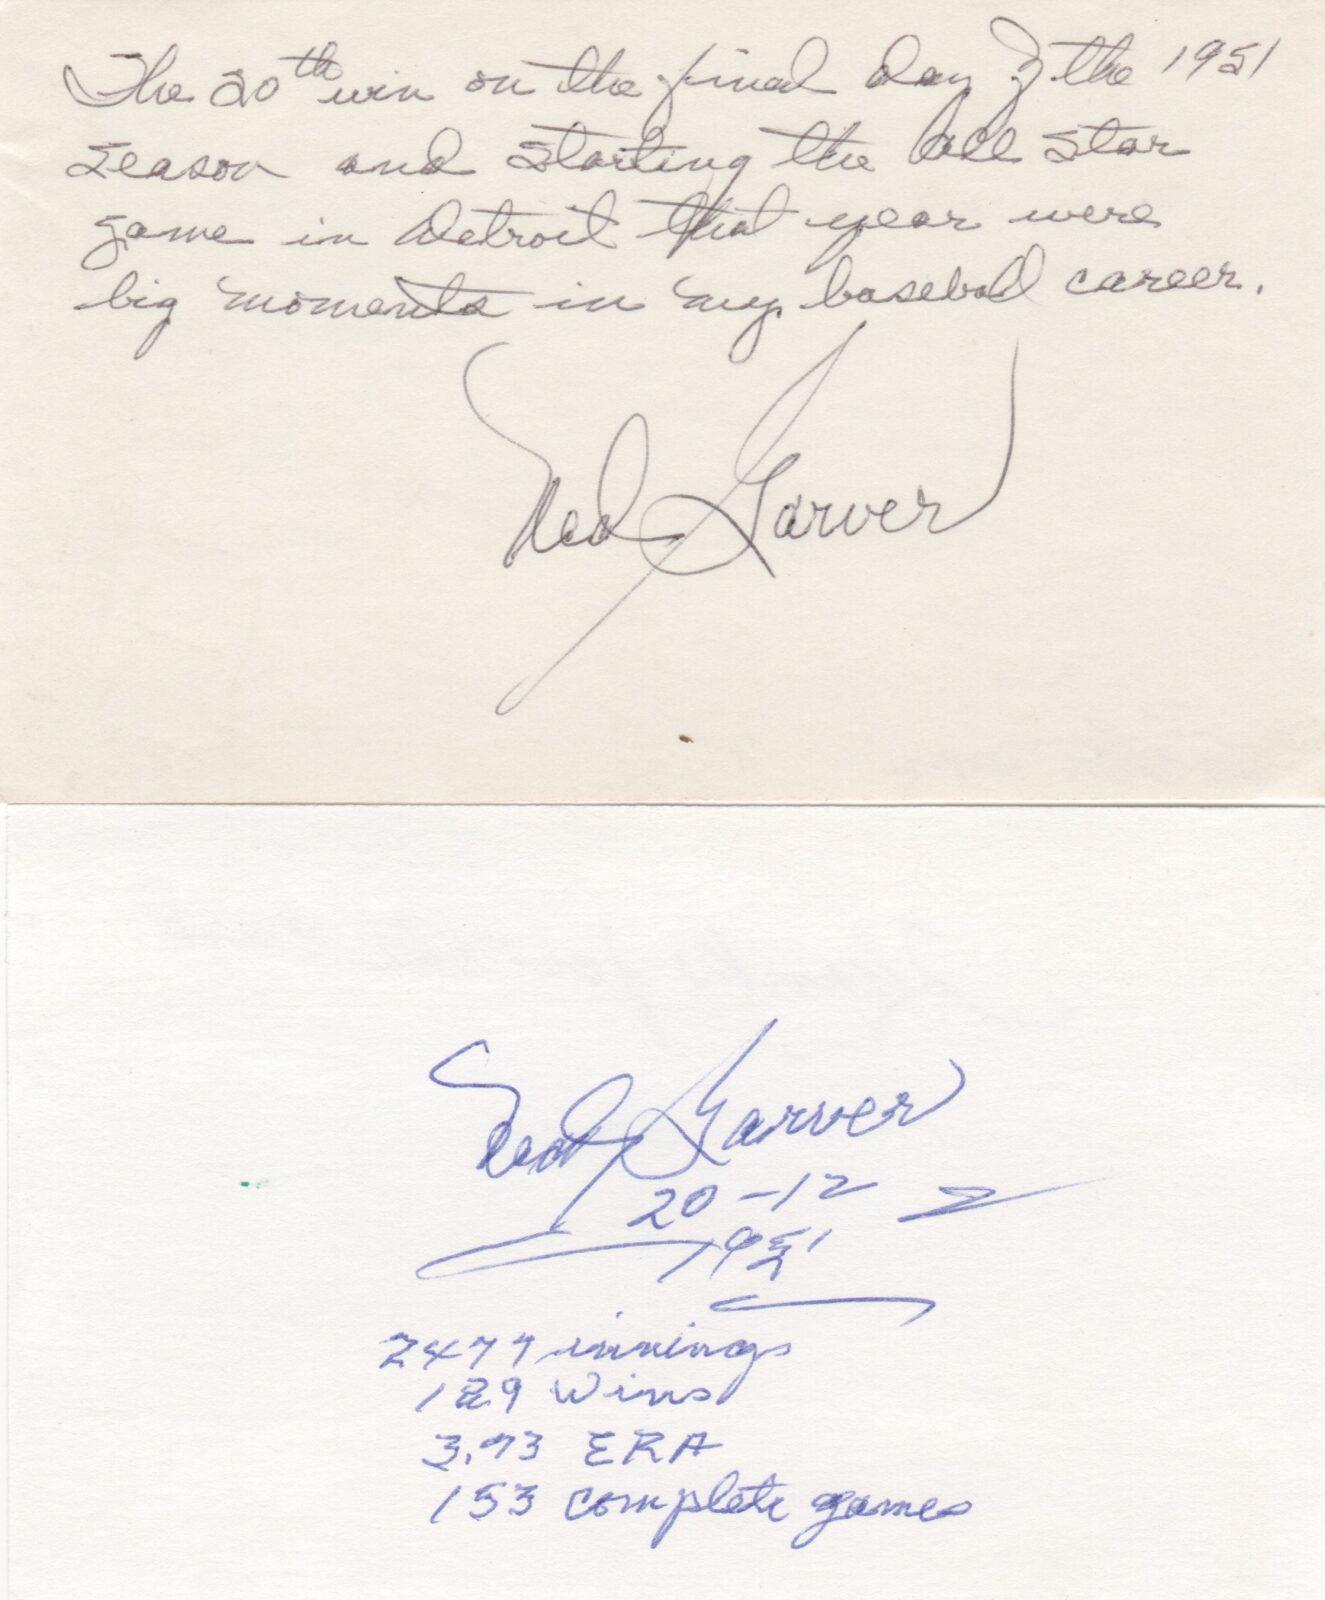 The 20th win on the final day of the 1951
season and starting the All Star
game in Detroit that year were
big moments in my baseball career.
Ned Garver
Ned Garver
20-12
1951
2477 innings
129 Wins
3.73 ERA
153 complete games